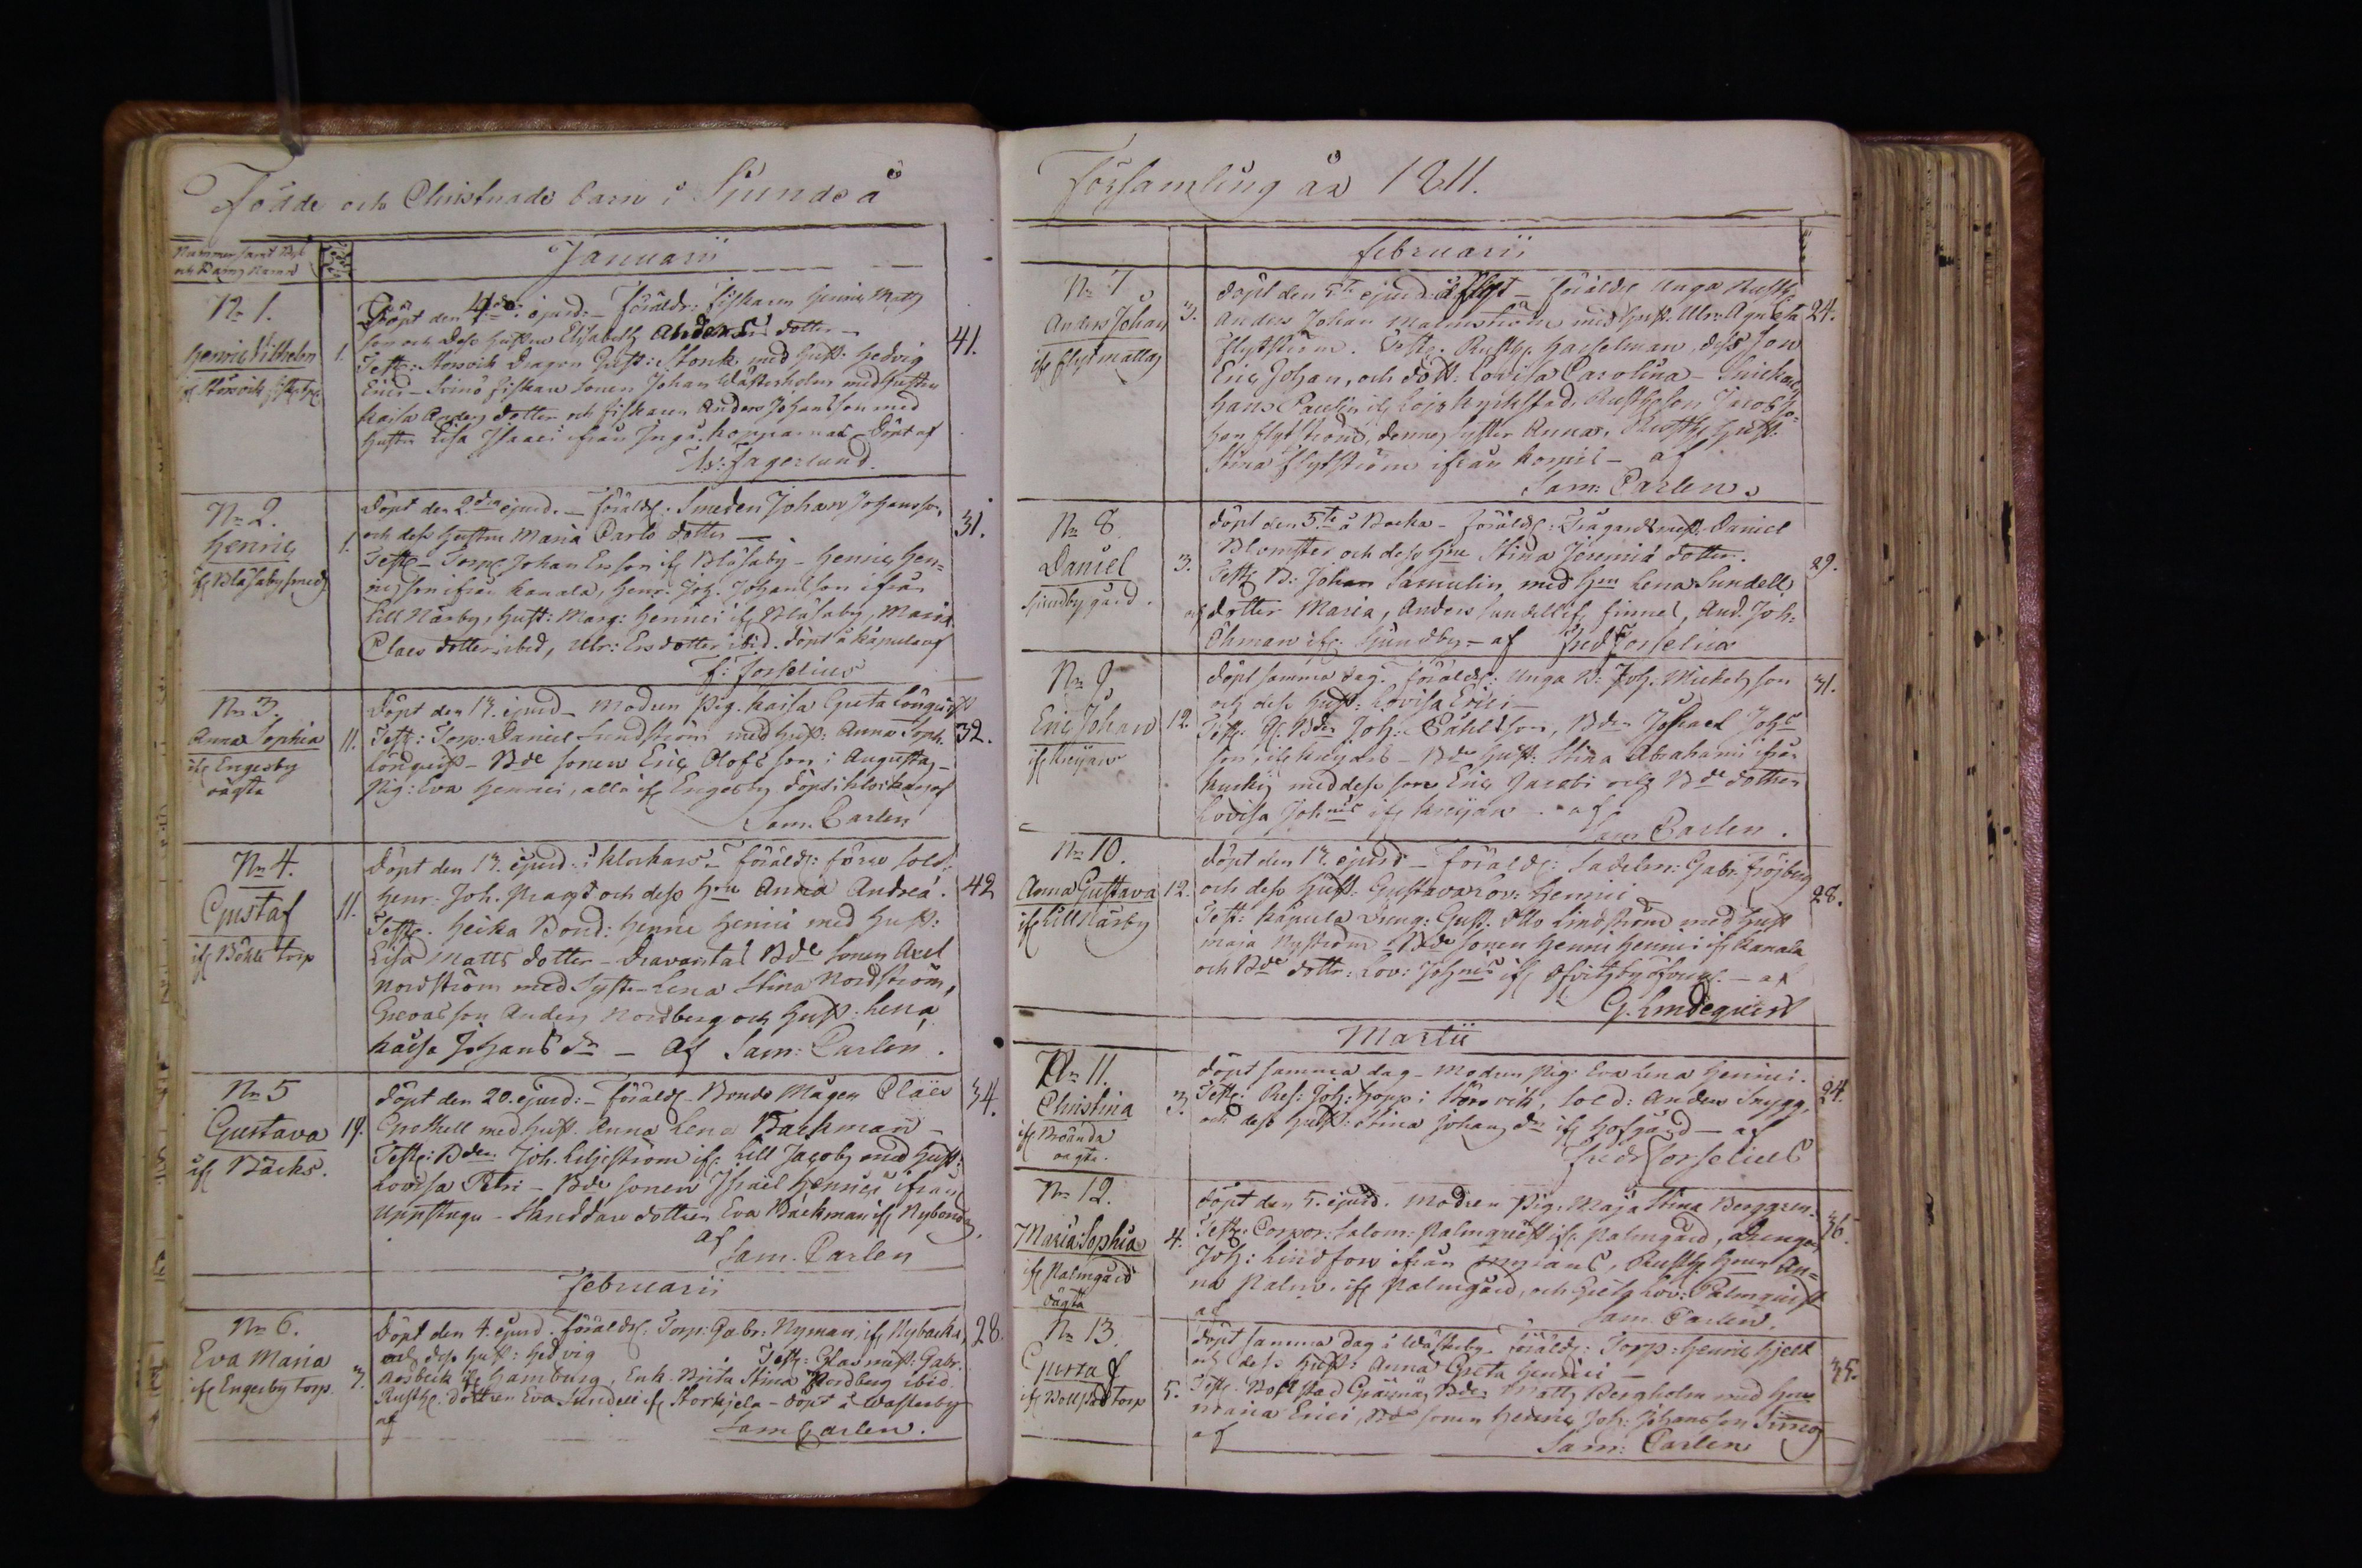 Födde och Christnade barn i Sjundeå
Januarii
No 1.
Henric Vilhelm
1.
Döpt den 4de ejusd: Föräldr: fiskaren Henric Matts
son och dess Hustru Elisabeth Anders dotter
41.
Test: Störsvik Dragon Gust: Stork med Hust: Hedvig
Erics fiskare Sonen Johan Westerholm med Hustru
Kaisa Anders dotter och fiskaren Anders Johansson med
Hustru Lisa Isaaci ifrån Ingå Kopparnäs Döpt af
Fagerlund.
No 2.
Henric
1.
Döpt den 2dra ejusd. Föräldr: Smeden Johan Johansson
och dess Hustru Maria Carls dotter
31.
Test Torp: Johan Ersson if Blåsaby Henric Hen=
ricsson ifrån Kanala, Henr: Joh. Johansson ifrån
Lill Närby, Hust: Marg: Henrici if Blåsaby, Maria
Claes dotter ibid, Ulr: Ersdotter ibid. döpt å Kapula af
F: Forselius
No 3.
Anna Sophia
if Engesby
oägta
11.
Döpt den 13. ejusd Modren Pig. Kaisa Greta Lönqvist
32.
Test: Torp: Daniel Sundström med Hust: Anna Soph.
Lönqvist Bde Sonen Eric Olofsson i Augustas
Pig: Eva Henrici, alla if Engesby döpt i klockars af
Sam. Carlen
No 4.
Gustaf
if Böhle torp
11.
Döpt den 13. ejusd: i klockars Föräldr: förre Sold:
Henr: Joh. och dess Hru Anna Andreæ.
42
Test: Heika Bond: Henric Henrici med Hust:
Lisa Matts dotter Dravantal Bde Sonen Axel
Nordström med Syster Lena Stina Nordström,
Anders Nordberg och Hust: Lena
Kaisa Johans dr af Sam: Carlen.
No 5
Gustava
if Bäcks.
19.
Döpt den 20. ejusd: Föräldr Bonde Mågen Claës
34.
Grothell med Hust. Anna Lena Backman
Test: Bden Joh. Liljeström if Lill Jacoby med Hust:
Lovisa Petri Bde Sonen Israel Henrici ifrån
Uppstugu Skräddare dottren Eva Bäckman if Nybonds,
af
Sam. Carlen
Februarii
No 6.
Eva Maria
if Engesby torp.
3.
Döpt den 4. ejusd. Föräldr: Torp: Gabr: Nyman if Nybacka
28.
och dess Hust: Hedvig
Test: Glasmäst: Gabr:
if Hamburg, Enk. Brita Stina Nordberg ibid.
Rusth: dottren Eva Sundell if Störkjela döpt å Westerby
af
Sam Carlen.
Församling år 1811.
Februarii
No 7
Anders Johan
if Flyt mattas
3.
Döpt den 5te ejusd: å Flyt Föräldr Unga Rusth
Anders Johan Malmström med Hust: Ulr: Agneta
24.
Flytström. Test: Rusth: Hasselman, dess Son
Eric Johan, och Dott: Lovisa Carolina
Hans Paulin if Lojo Kyrkstad, Rusth: Son Jacob Jo=
han Flytström, dennes Syster Anna, Rusth: Hust:
Stina Flytström ifrån Kopul af
Sam: Carlen.
No 8.
Daniel
Sjundby gård.
3.
Döpt den 5.te å Backa Föräldr: Trägårdsmäst: Daniel
Blomster och dess Hru Stina Jeremiæ dotter.
29.
Test B: Johan Samulin med Hru Lena Sundell
dotter Maria, Anders Sundell if Finnes, And. Joh:
Öhman if Sjundby af Fred Forselius
No 9
Eric Johan
12.
Döpt samma dag. Föräldr: Unga B: Joh: Mickelsson
31.
och dess Hust: Lovisa Erici
Test Bden Joh: Påhlsson, Bden Israel Johs
son, Bde Hust: Stina Abrahami ifrån
med dess Son Eric Jacobi och Bde dotter
Lovisa Johnis af
Sam Carlen.
No 10.
Anna Gustava
if Lill Närby
12.
Döpt den 13. ejusd Föräldr: Sadelm: Gabr: Fröjberg
och dess Hust: Gustava Lov: Henrici
28.
Test: Kapula Dreng: Gust: Otto Lindström med Hust
Maja Nyström Bde Sonen Henric Henrici if Kanala
och Bde Dottr: Lov: Johnis af
G. Lindequist
Martii
No 11.
Christina
oägta.
3.
Döpt samma dag Modren Pig: Eva Lena Henrici.
24.
Test: Res: Joh: Hopp i Störsvik, Sold: Anders Snygg
och dess Hust: Stina Johans dr if Hofgård af
Fredr Forselius
No 12.
Maria Sophia
if Palmgård
oägta
4.
Döpt den 5. ejusd. Modren Pig: Maja Stina Berggren.
36.
Test: Corpor: Salom: Palmqvist if Palmgård, Drengen
Joh: Lindfors ifrån Rusth: Hrun An=
na Palm. if Palmgård, och Lov: Palmquist
af
Sam. Carlen.
No 13.
Gustaf
if Bollstad torp
5.
Döpt samma dag å Wästerby Föräldr: Torp: Henric Hjelt
och dess Hust: Anna Greta Henrici
35.
Test. Bollstad Grännäs Bde: Matts Bergholm med Hru
Maria Erici, Bde Sonen Henric Joh: Johansson
af
Sam: Carlen